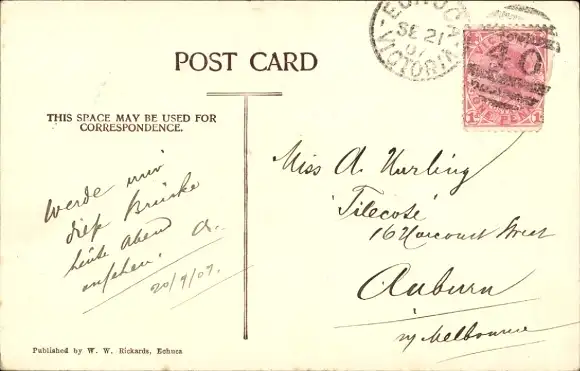 POST CARD
THIS SPACE MAY BE USED FOR
CORRESPONDENCE.
ECHUCA
SE 21
07
VICTORIA
VICTORIA
40
1
PENNY
1
Werde mir
dieſe Brücke
heute Abend
anſehen. A.
20/9/07.
Miss A. Nurling
'Tilecote'
16 Harcourt Street
Auburn
nr Melbourne
Published by W. W. Rickards, Echuca